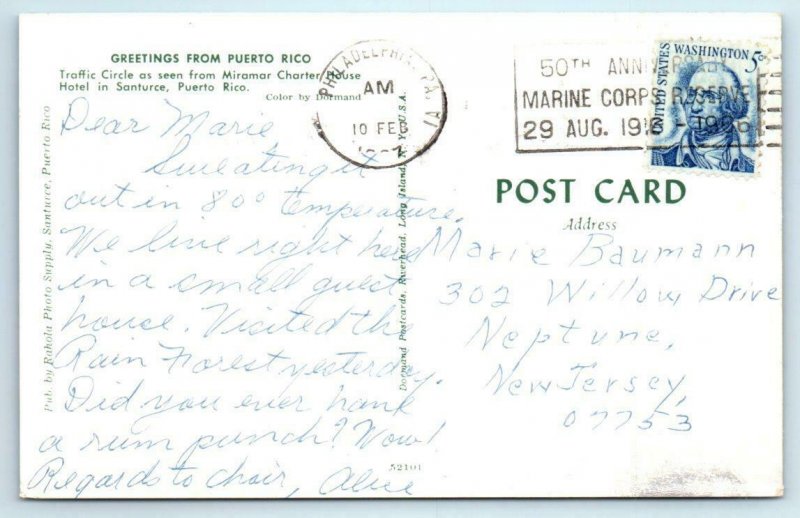 GREETINGS FROM PUERTO RICO
Traffic Circle as seen from Miramar Charter House
Hotel in Santurce, Puerto Rico.
Color by Dormand
Dear Marie
Sweating it
out in 80° temperature.
We live right here
in a small guest
house. Visited the
Rain Forest yesterday.
Did you ever hank
a rum punch? Wow!
Regards to choir, Alice
Pub. by Rahola Photo Supply, Santurce, Puerto Rico
Dormand Postcards, Riverhead, Long Island, N. Y., U.S.A.
52101
PHILADELPHIA, PA.
AM
10 FEB
50TH ANNIVERSARY
MARINE CORPS RESERVE
29 AUG. 1916 - 1966
WASHINGTON 5c
UNITED STATES
POST CARD
Address
Marie Baumann
302 Willow Drive
Neptune,
New Jersey,
07753